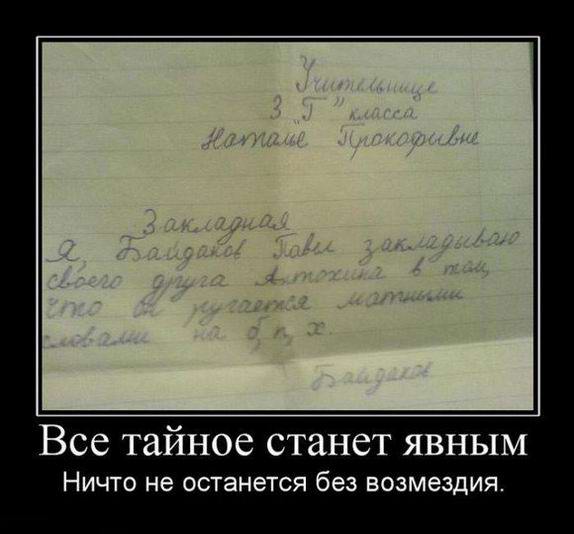 Учительнице
3 "Г" класса
Наталье Прокофивне
Закладная
Я, Байдаков Павел закладываю
своего друга Антохина в том,
что он ругается матными
словами на б, п, х.
Байдаков
Все тайное станет явным
Ничто не останется без возмездия.